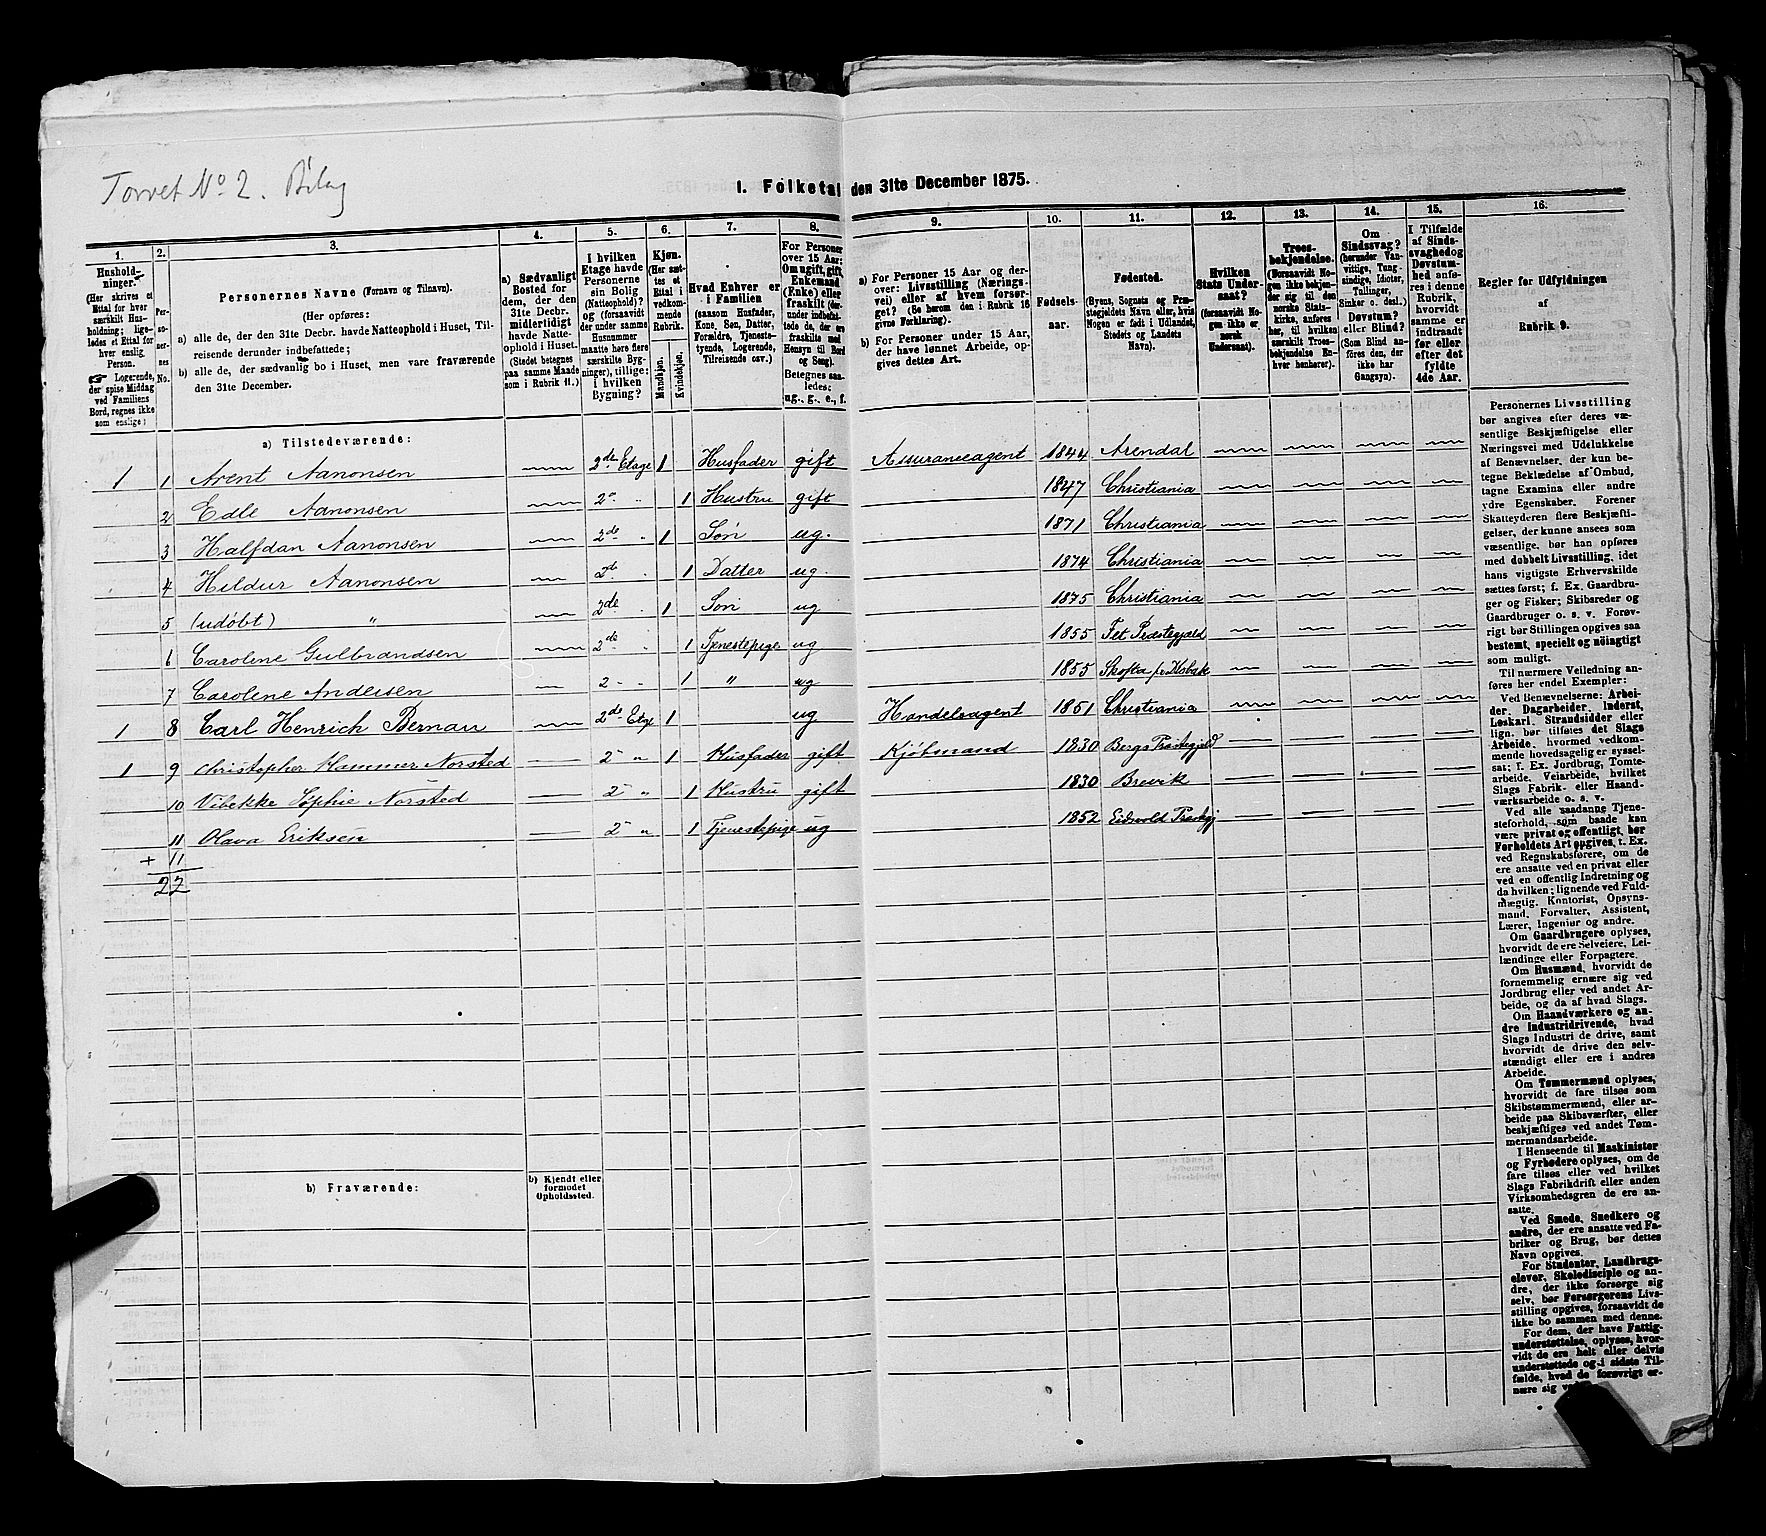 Torvet No 2. Bilag
I. Folketal den 31te December 1875.
1. 2. 3. 4. 5. 6. 7. 8. 9. 10. 11. 12. 13. 14. 15. 16.
Husholdninger.
(Her skrives et Ettal for hver særskilt Husholdning; ligeledes et Ettal for hver enslig Person.
☞ Logerende, der spise Middag ved Familiens Bord, regnes ikke som enslige)
Personernes No.
Personernes Navne (Fornavn og Tilnavn).
(Her opføres:
a) alle de, der den 31te Decbr. havde Natteophold i Huset, Tilreisende derunder indbefattede;
b) alle de, der sædvanlig bo i Huset, men vare fraværende den 31te December.
a) Sædvanligt Bosted for dem, der den 31te Decbr. midlertidigt havde Natteophold i Huset. (Stedet betegnes paa samme Maade som i Rubrik 11.)
I hvilken Etage havde Personerne sin Bolig (Natteophold)? og (forsaavidt der under samme Husnummer maatte høre flere særskilte Bygninger), tillige: i hvilken Bygning?
Kjøn. (Her sættes et Ettal i vedkommende Rubrik.
Mandkjøn. Kvindekjøn.
Hvad Enhver er i Familien (saasom Husfader, Kone, Søn, Datter, Forældre, Tjenestetyende, Logerende, Tilreisende osv.)
For Personer over 15 Aar: Om ugift, gift, Enkemand (Enke) eller fraskilt (derunder indbefattede de, der ere fraskilte med Hensyn til Bord og Seng). Betegnes saaledes: ug., g., e., f.
a) For Personer 15 Aar og derover: Livsstilling (Næringsvei) eller af hvem forsørget? (Se herom den i Rubrik 16 givne Forklaring).
b) For Personer under 15 Aar, der have lønnet Arbeide, opgives dettes Art.
Fødselsaar.
Fødested. (Byens, Sognets og Præstegjeldets Navn, eller, hvis Nogen er født i Udlandet, Stedets og Landets Navn).
Hvilken Stats Undersaat? (forsaavidt Nogen ikke er norsk Undersaat).
Troesbekjendelse. (Forsaavidt Nogen ikke bekjender sig til den norske Statskirke, anføres her, til hvilken særskilt Troesbekjendelse Enhver henhører).
Om Sindssvag? (herunder Vanvittige, Tungsindige, Idioter, Tullinger, Sinker o. desl.) Døvstum? eller Blind? (Som Blind anføres den, der ikke har Gangsyn).
I Tilfælde af Sindssvaghed og Døvstumhed anføres i denne Rubrik, hvorvidt samme er indtraadt før eller efter det fyldte 4de Aar.
Regler for Udfyldningen af Rubrik 9.
a) Tilstedeværende:
1 1 Arent Aanonsen 2de Etage 1 Husfader gift Assuranceagent 1844 Arendal
2 Edle Aanonsen 2de " 1 Hustru gift 1847 Christiania
3 Halfdan Aanonsen 2de " 1 Søn ug. 1871 Christiania
4 Hildur Aanonsen 2de " 1 Datter ug. 1874 Christiania
5 (udøbt) " 2de " 1 Søn ug 1875 Christiania
6 Caroline Gulbrandsen 2de " 1 Tjenestepige ug 1855 Fet Præstegjæld
7 Caroline Andersen 2 - " 1 " ug 1855 Skofta
1 8 Carl Henrich Bernau 2de Etge 1 ug Handelsagent 1851 Christiania
1 9 Christopher Hammer Norsted 2 - " 1 Husfader gift Kjøbmand 1830 Bergs Præstegjeld
10 Vibekke Sophie Norsted 2 - " 1 Hustru gift 1830 Brevik
11 Olava Eriksen 2 - " 1 Tjenestepige ug 1852 Eidsvold Præstgj
+ 11
22
b) Fraværende:
b) Kjendt eller formodet Opholdssted.
Personernes Livsstilling bør angives efter deres væsentlige Beskjæftigelse eller Næringsvei med Udelukkelse af Benævnelser, der kun betegne Beklædelse af Ombud, tagne Examina eller andre ydre Egenskaber. Forener Skatteyderen flere Beskjæftigelser, der kunne ansees som væsentlige, bør han opføres med dobbelt Livsstilling, idet hans vigtigste Erhvervskilde sættes først; f. Ex. Gaardbruger og Fisker; Skibsreder og Gaardbruger o. s. v. Forøvrigt bør Stillingen opgives saa bestemt, specielt og nöiagtigt som muligt.
Til nærmere Veiledning anføres her endel Exempler:
Ved Benævnelserne: Arbeider, Dagarbeider, Inderst, Løskarl, Strandsidder eller lign. bør tilføies det Slags Arbeide, hvormed vedkommende hovedsagelig er sysselsat; f. Ex. Jordbrug, Tomtearbeide, Veiarbeide, hvilket Slags Fabrik- eller Haandværksarbeide o. s. v.
Ved alle saadanne Tjenesteforhold, som baade kan være privat og offentligt, bør Forholdets Art opgives, f. Ex. ved Regnskabsførere, om de ere ansatte ved en privat eller ved en offentlig Indretning og da hvilken; lignende ved Fuldmægtig, Kontorist, Opsynsmand, Forvalter, Assistent, Lærer, Ingeniør og andre.
Om Gaardbrugere oplyses, hvorvidt de ere Selveiere, Leilændinge eller Forpagtere.
Om Husmænd, hvorvidt de fornemmelig ernære sig ved Jordbrug eller ved andet Arbeide, og da af hvad Slags.
Om Haandværkere og andre Industridrivende, hvad Slags Industri de drive, samt hvorvidt de drive den selvstændigt eller ere i andres Arbeide.
Om Tømmermænd oplyses, hvorvidt de fare tilsøs som Skibstømmermænd, eller arbeide paa Skibsværfter, eller beskjæftiges ved andet Tømmermandsarbeide.
I Henseende til Maskinister og Fyrbødere oplyses, om de fare tilsøs eller ved hvilket Slags Fabrikdrift eller anden Virksomhedsgren de ere ansatte.
Ved Smede, Snedkere og andre, der ere ansatte ved Fabriker og Brug, bør dettes Navn opgives.
For Studenter, Landbrugselever, Skoledisciple og andre, der ikke forsørge sig selv, bør Forsørgerens Livsstilling opgives, forsaavidt de ikke bo sammen med denne.
For dem, der have Fattigunderstøttelse, oplyses, hvorvidt de ere helt eller delvis understøttede og i sidste Tilfælde, hvad de forøvrigt ernære sig ved